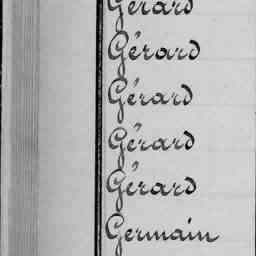 Gérard
Gérard
Gérard
Gérard
Gérard
Germain